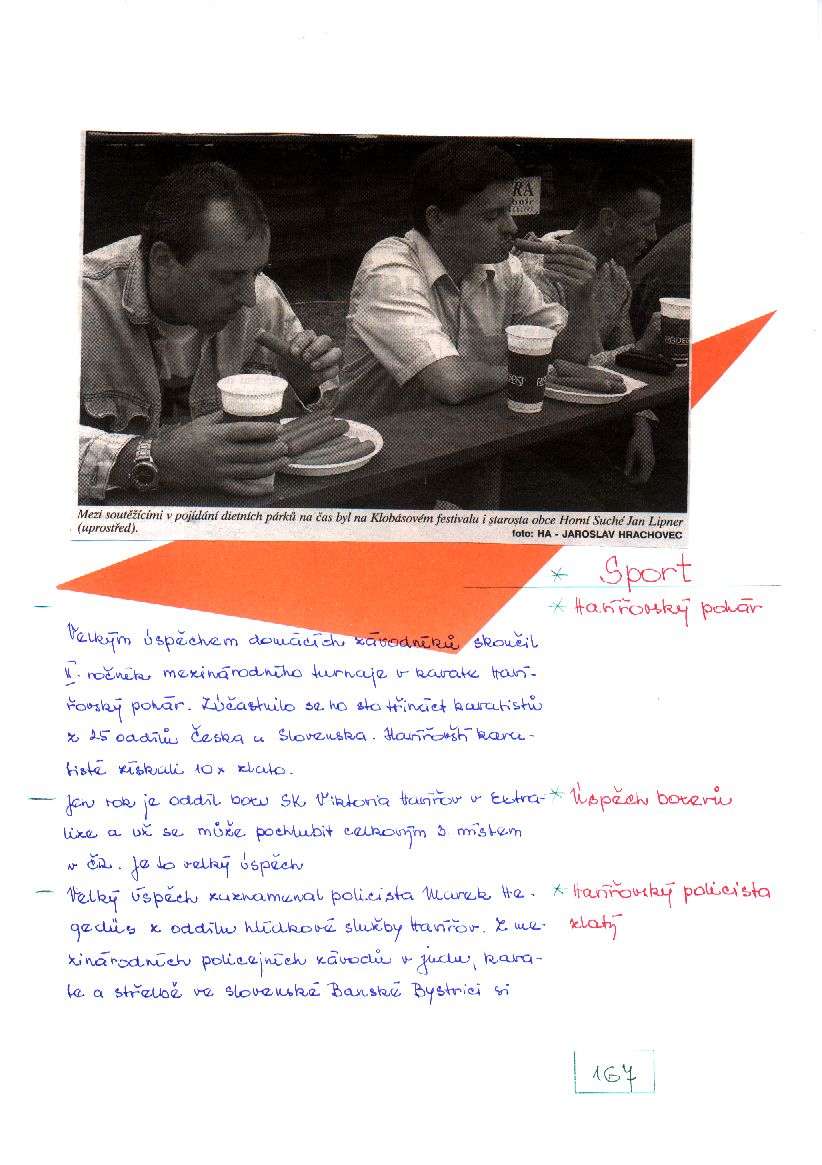 RA
Mezi soutěžícími v pojídání dietních párků na čas byl na Klobásovém festivalu i starosta obce Horní Suché Jan Lipner
(uprostřed).
foto: HA - JAROSLAV HRACHOVEC
* Sport
* Havířovský pohár
Velkým úspěchem domácích závodníků skončil
II. ročník mezinárodního turnaje v karate Haví-
řovský pohár. Zúčastnilo se ho sto třináct karatistů
z 25 oddílů Česka a Slovenska. Havířovští kara-
tisté získali 10x zlato.
Jen rok je oddíl boxu SK Viktoria Havířov v Extra-
lize a už se může pochlubit celkovým 3. místem
v ČR. Je to velký úspěch
* Úspěch boxerů
Velký úspěch zaznamenal policista Marek He-
gedüs z oddílu hlídkové služby Havířov. Z me-
zinárodních policejních závodů v judu, kara-
te a střelbě ve slovenské Banské Bystrici si
* Havířovský policista
zlatý
167